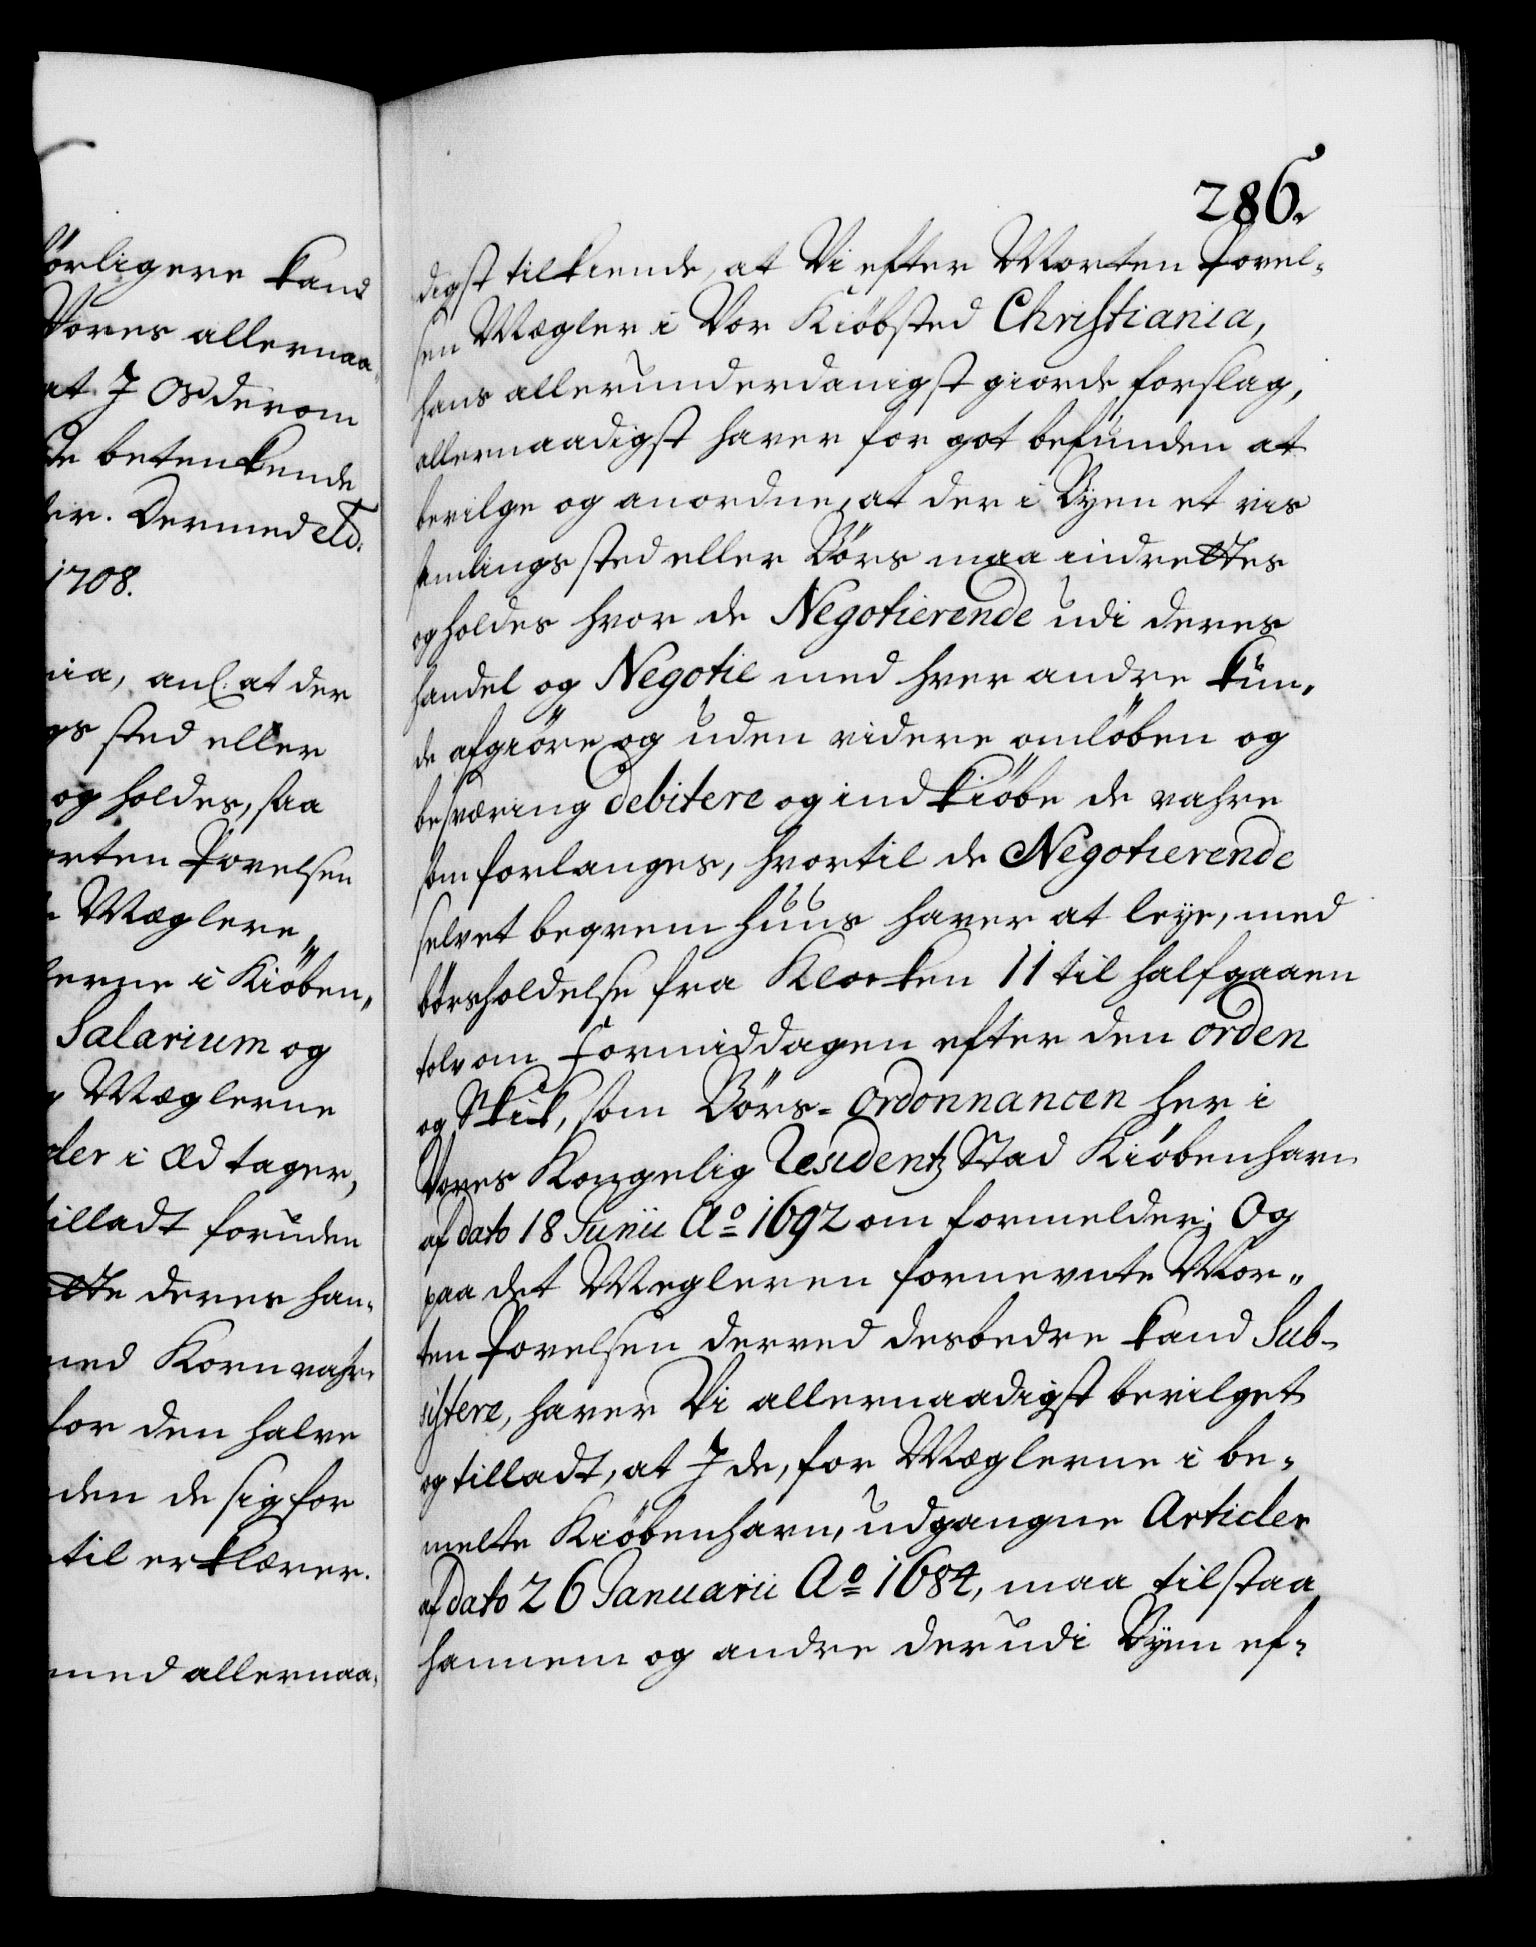 örligere kand
Vores allernaa-
at I Os derom
de betenkende
ver. Dermed etc.
1708.
nia, anl: at der
gs sted eller
og holdes, saa
orten Povelsen
e Mæglere,
lerne i Kiöben-
Salarium og
g Mæglerne
der i Æd tager,
tilladt foruden
ette deres han-
med Kornvahre
for den halve
den de sig for
til erklærer.
med allernaa-
286.
digst tilkiende, at Vi efter Morten Povel-
sen Mægler i Vor Kiöbsted Christiania,
hans allerunderdanigst giorde forslag,
allernaadigst haver for got befunden at
bevilge og anordne, at der i Byen et vis
samlings sted eller Börs maa indrettes
og holdes hvor de Negotierende udi deres
handel og Negotie med hver andre kun-
de afgiöre og uden videre omlöben og
besværing debitere og indkiöbe de vahre
som forlanges, hvortil de Negotierende
selv et beqvem huus haver at leye, med
börsholdelse fra Klocken 11 til halfgaaen
tolv om Formiddagen efter den orden
og Skik, som Börs-Ordonnancen her i
Vores Kongelig Residentz Stad Kiöbenhavn
af dato 18 Junii Ao 1692 om formelder; Og
paa det Megleren fornevnte Mor-
ten Povelsen derved desbedre kand Sub-
sistere, haver Vi allernaadigst bevilget
og tilladt, at I de, for Mæglerne i be-
melte Kiöbenhavn, udgangne Articler
af dato 26 Januarii Ao 1684, maa tilstaa
hannem og andre der udi Byen ef-